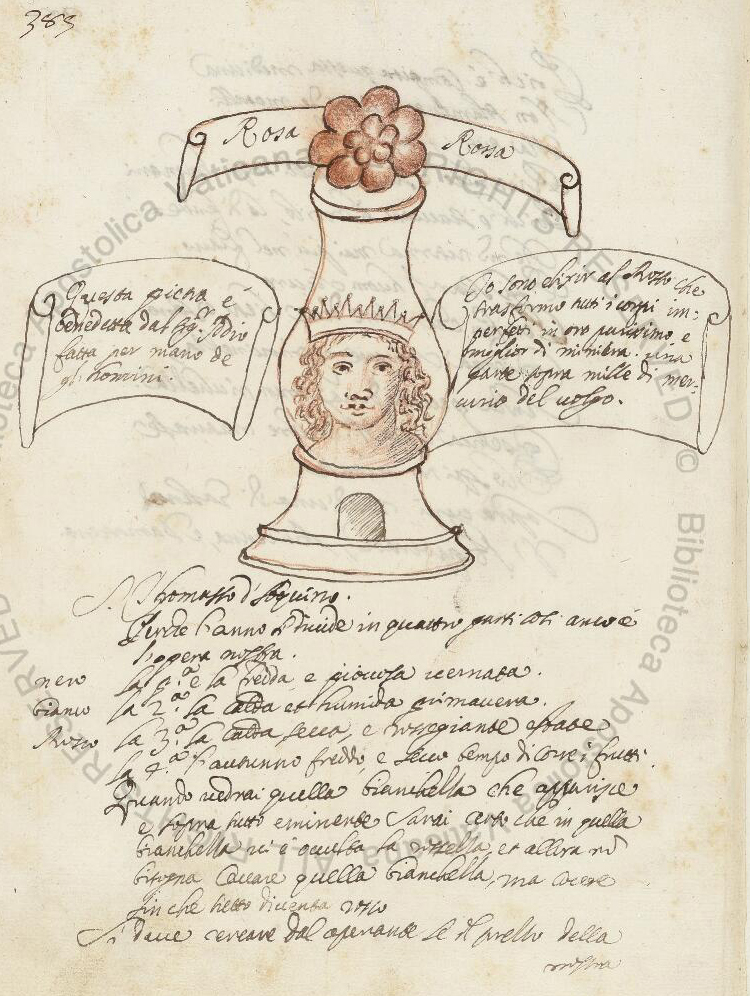 383
Rosa Rossa
Questa pietra é
benedetta dal Sig.r Idio
fatta per mano de
gl'homini.
Io sono elixir al Rosso che
trasformo tutti i corpi im-
perfetti in oro purissimo, e
meglior di miniera. una
parte sopra mille di mer-
curio del volgo.
S. Thomasso d'Aquino.
l'anno si divide in quattro parti così anco é
l'opera nostra.
nero la p.a é la fredda, e piovosa vernata.
bianco la 2.a la calda et humida primavera.
Rosso la 3.a la calda secca, e rossegiante estate
la 4.a l'autunno freddo, e secco tempo di corre i frutti.
Quando vedrai quella bianchella che apparisce
e sopra tutto eminente sarai certo che in quella
bianchella vi é occulta la rossella, et allora nõ
bisogna cavare quella bianchella, ma cocere
fin che tutto diventa rosso
Si deve cercare dal operante se il della
nostra
© Biblioteca Apostolica Vaticana ALL RIGHTS RESERVED